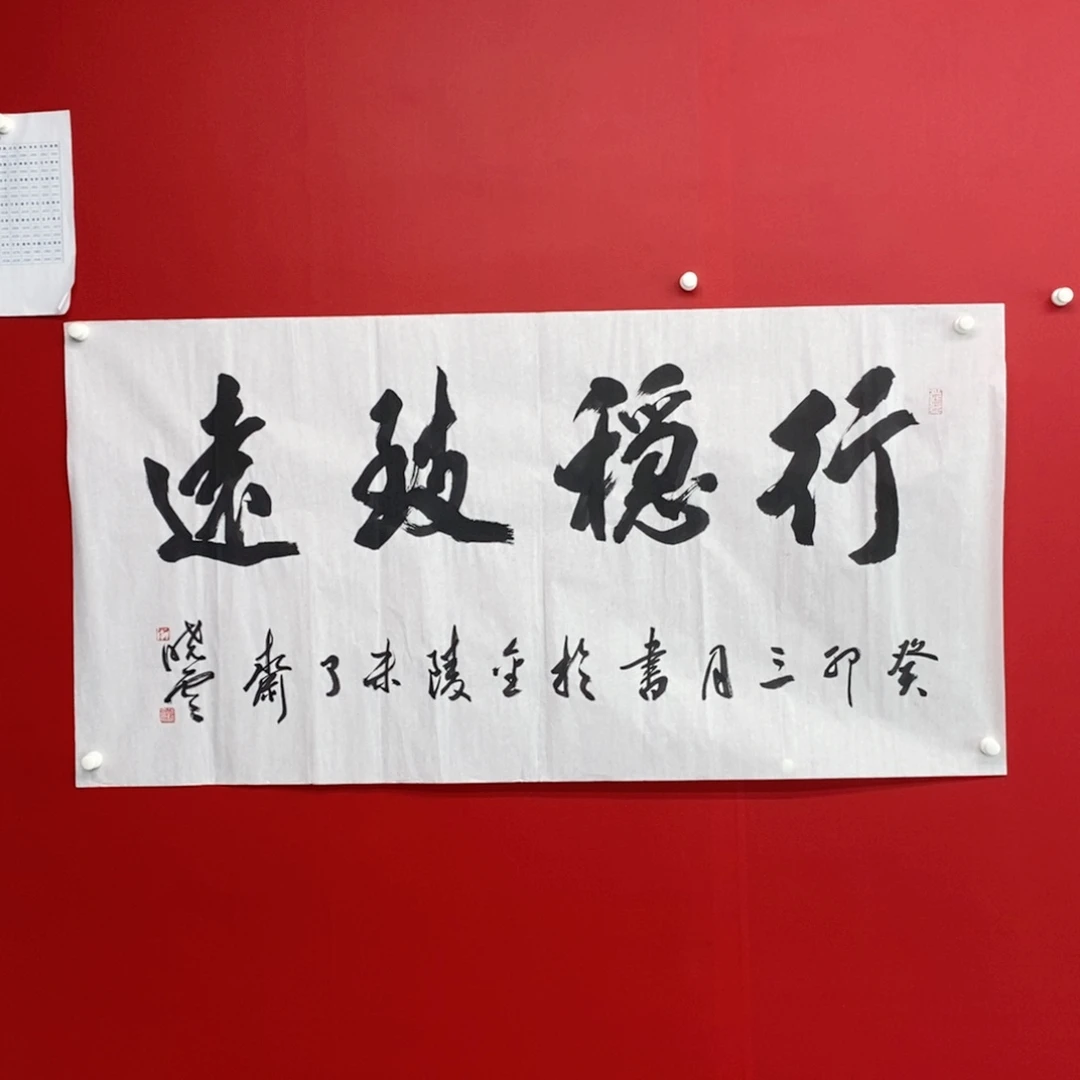 行穩致遠
癸卯三月書於金陵未了齋
曉雲